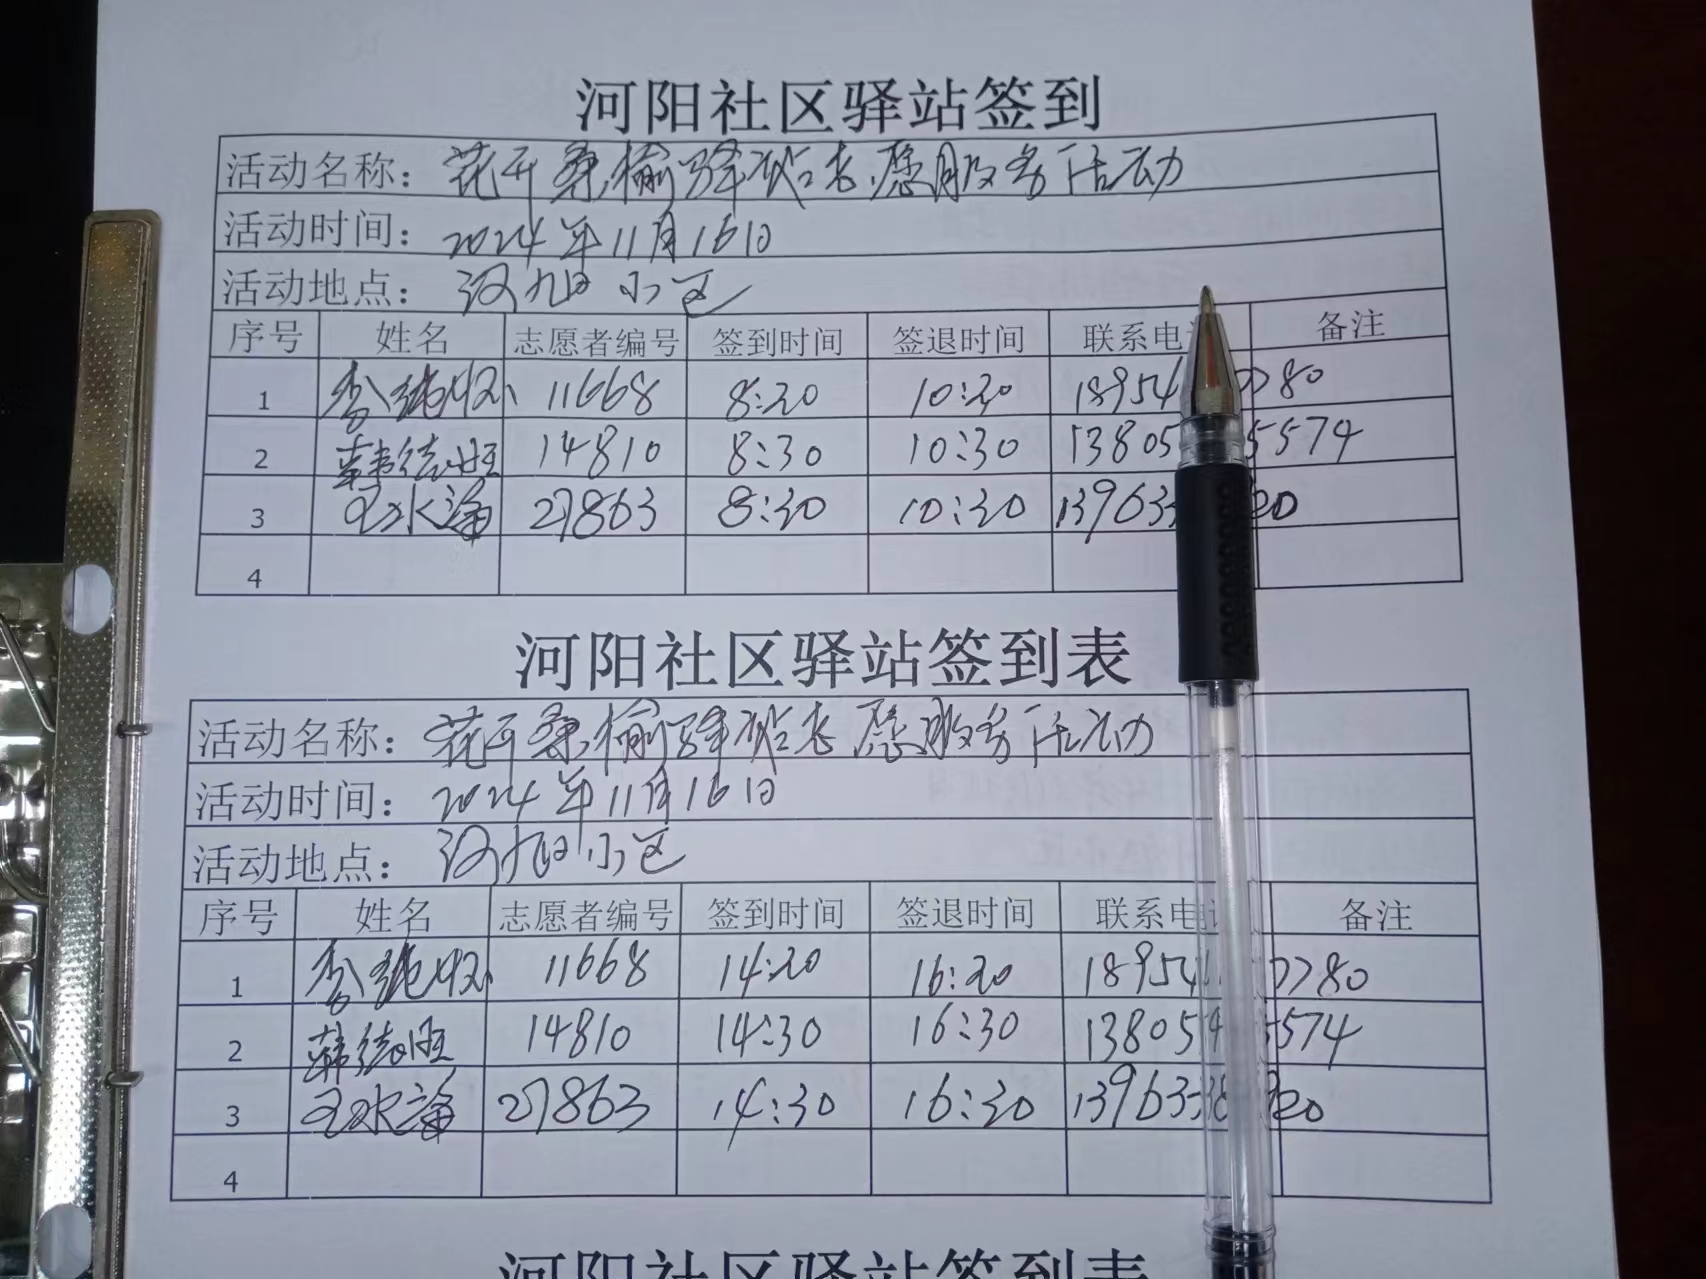 河阳社区驿站签到
活动名称：花开桑榆驿站志愿服务活动
活动时间：2024年11月16日
活动地点：汉旭小区
序号 姓名 志愿者编号 签到时间 签退时间 联系电 备注
1 李纯 11668 8:30 10:30 18954 780
2 韩德旺 14810 8:30 10:30 13805 5574
3 王水 27863 8:30 10:30 139633 20
4
河阳社区驿站签到表
活动名称：花开桑榆驿站志愿服务活动
活动时间：2024年11月16日
活动地点：汉旭小区
序号 姓名 志愿者编号 签到时间 签退时间 联系电 备注
1 李纯 11668 14:30 16:30 18954 780
2 韩德旺 14810 14:30 16:30 138054 5574
3 王水 27863 14:30 16:30 1396338 20
4
河阳社区驿站签到表